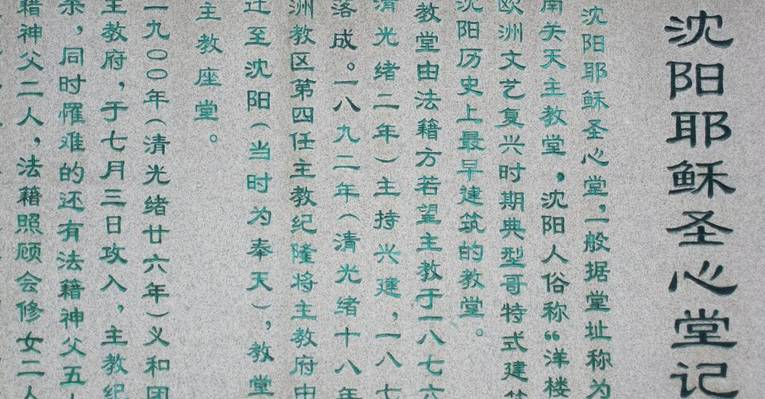 沈阳耶稣圣心堂记
沈阳耶稣圣心堂，一般据堂址称为
南关天主教堂，沈阳人俗称“洋楼
欧洲文艺复兴时期典型哥特式建筑
沈阳历史上最早建筑的教堂。
教堂由法籍方若望主教于一八七六
清光绪二年）主持兴建，一八七
落成。一八九二年（清光绪十八年
洲教区第四任主教纪隆将主教府由
迁至沈阳（当时为奉天），教堂
主教座堂。
一九〇〇年（清光绪廿六年）义和团
主教府，于七月三日攻入，主教纪
杀，同时罹难的还有法籍神父五人
籍神父二人，法籍照顾会修女二人